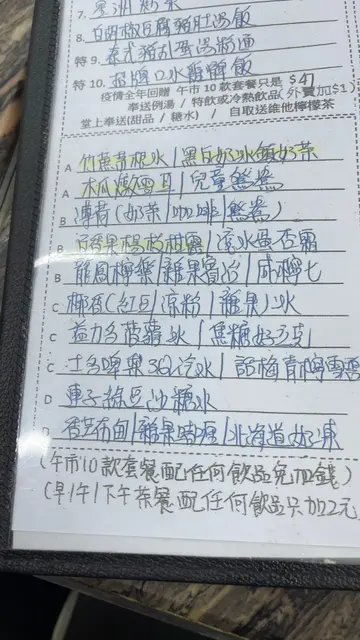 7. 星洲炒米
8. 胡椒豆腐豬肚湯飯
特9. 泰式豬扒蛋湯麵
特10. 招牌口水雞髀飯
疫情全年回贈 午市10款套餐只是$47
奉送例湯 / 特飲或冷熱飲品(外賣加$1)
堂上奉送(甜品 / 糖水) / 自取送維他檸檬茶
A 竹蔗茅根水 | 黑白奶冰鎮奶茶
A 木瓜燉雪耳 | 兒童鴛鴦
B 薄荷(奶茶 | 咖啡 | 鴛鴦)
B 百香果楊枝甘露 | 滾水蛋杏霜
B 龍鳳檸樂 | 雜果賓治 | 咸檸七
C 椰香(紅豆 | 涼粉 | 雜果)冰
C 益力多菠蘿冰 |
C 士多啤梨 汽水 | 話梅青檸
D 綠豆沙糖水
D 香芒布甸 | 雜果啫喱 | 北海道奶凍
(午市10款套餐配任何飲品免加錢)
(早 | 午 | 下午茶餐配任何飲品只加2元